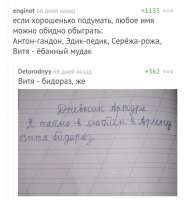 enginot 68 дней назад +1133
если хорошенько подумать, любое имя
можно обидно обыграть:
Антон-гандон, Эдик-педик, Серёжа-рожа,
Витя - ёбанный мудак
Detorodnyy 68 дней назад +362
Витя - бидораз, же
Дневник Артура
Я тайно в люблён в Арину
Витя бидораз